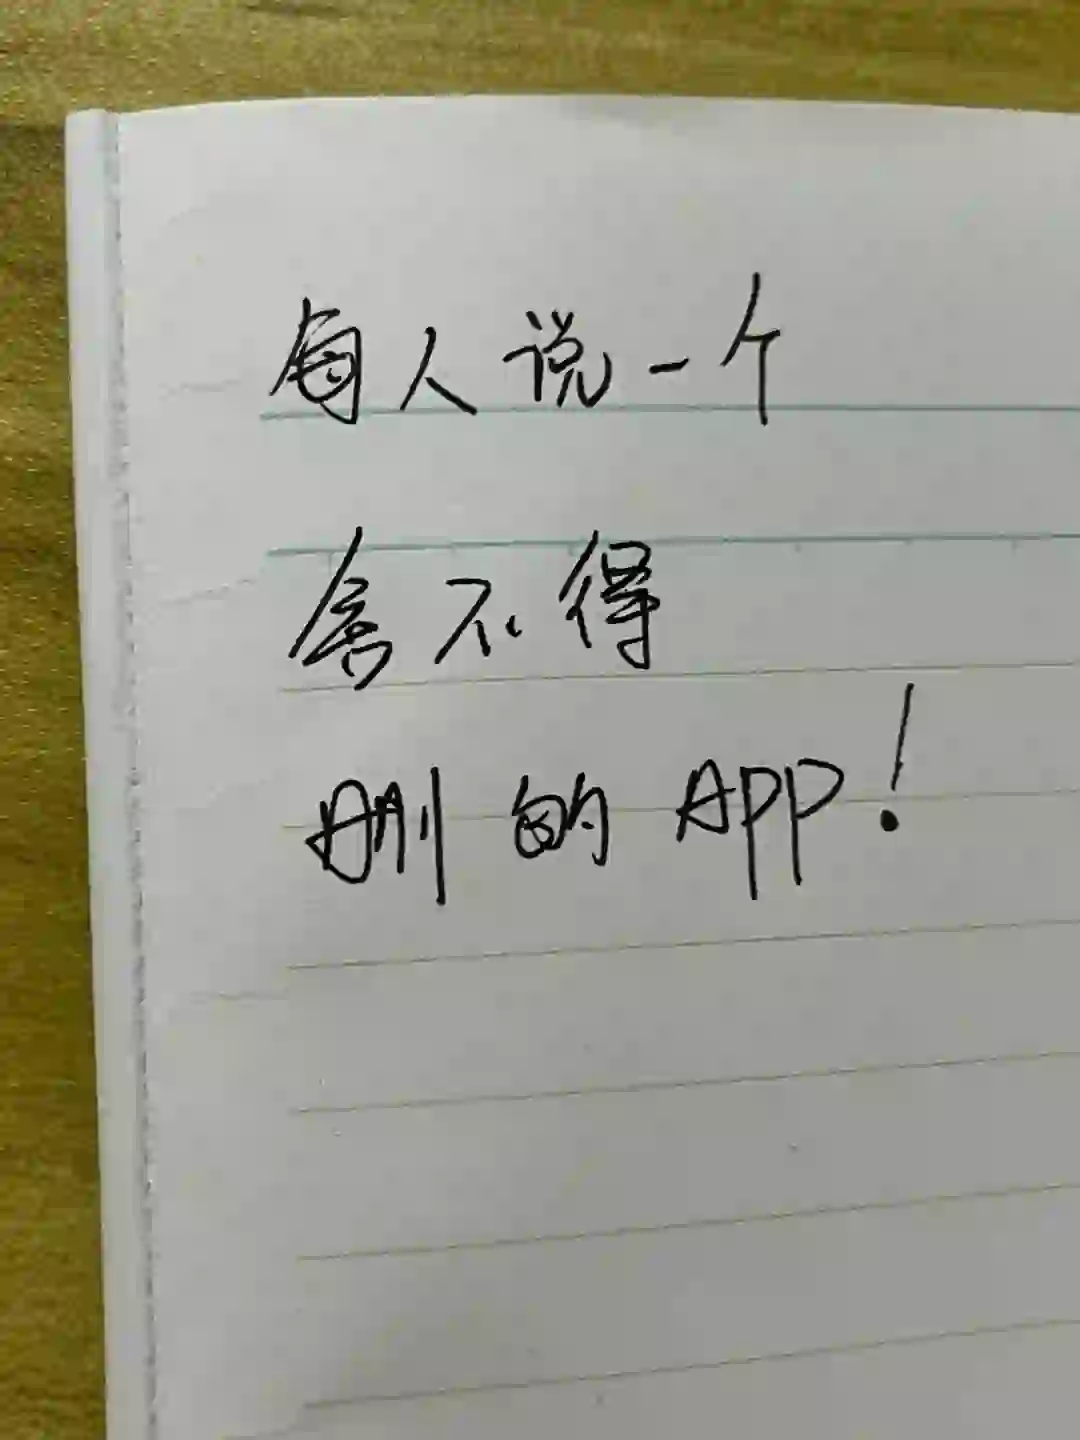 每人说一个
舍不得
删的APP!